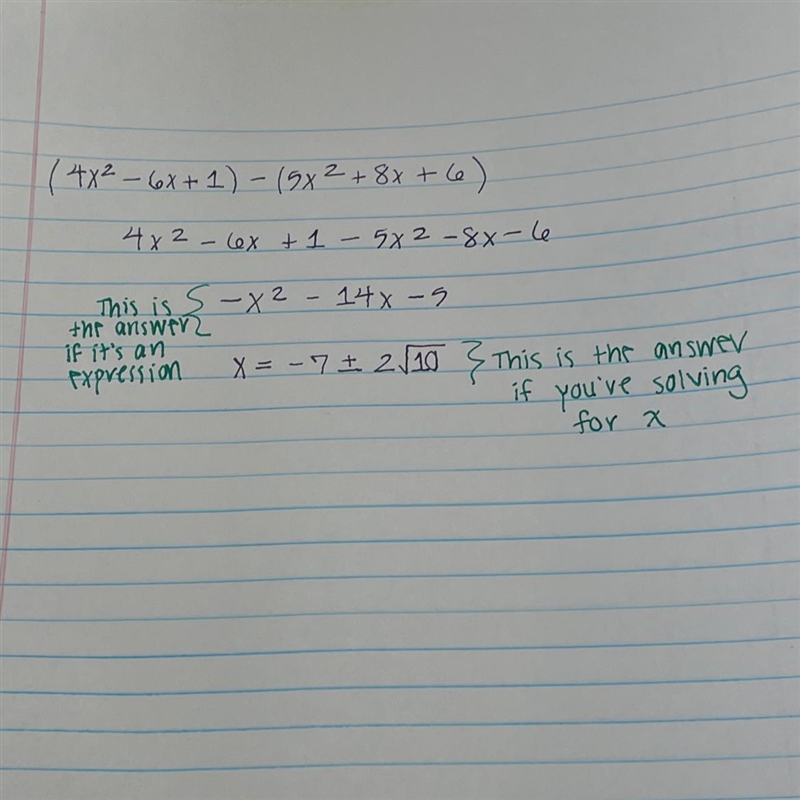 (4x² - 6x + 1) - (5x² + 8x + 6)
4x² - 6x + 1 - 5x² - 8x - 6
-x² - 14x - 5
This is
the answer
if it's an
expression
x = -7 ± 2√10
This is the answer
if you've solving
for x